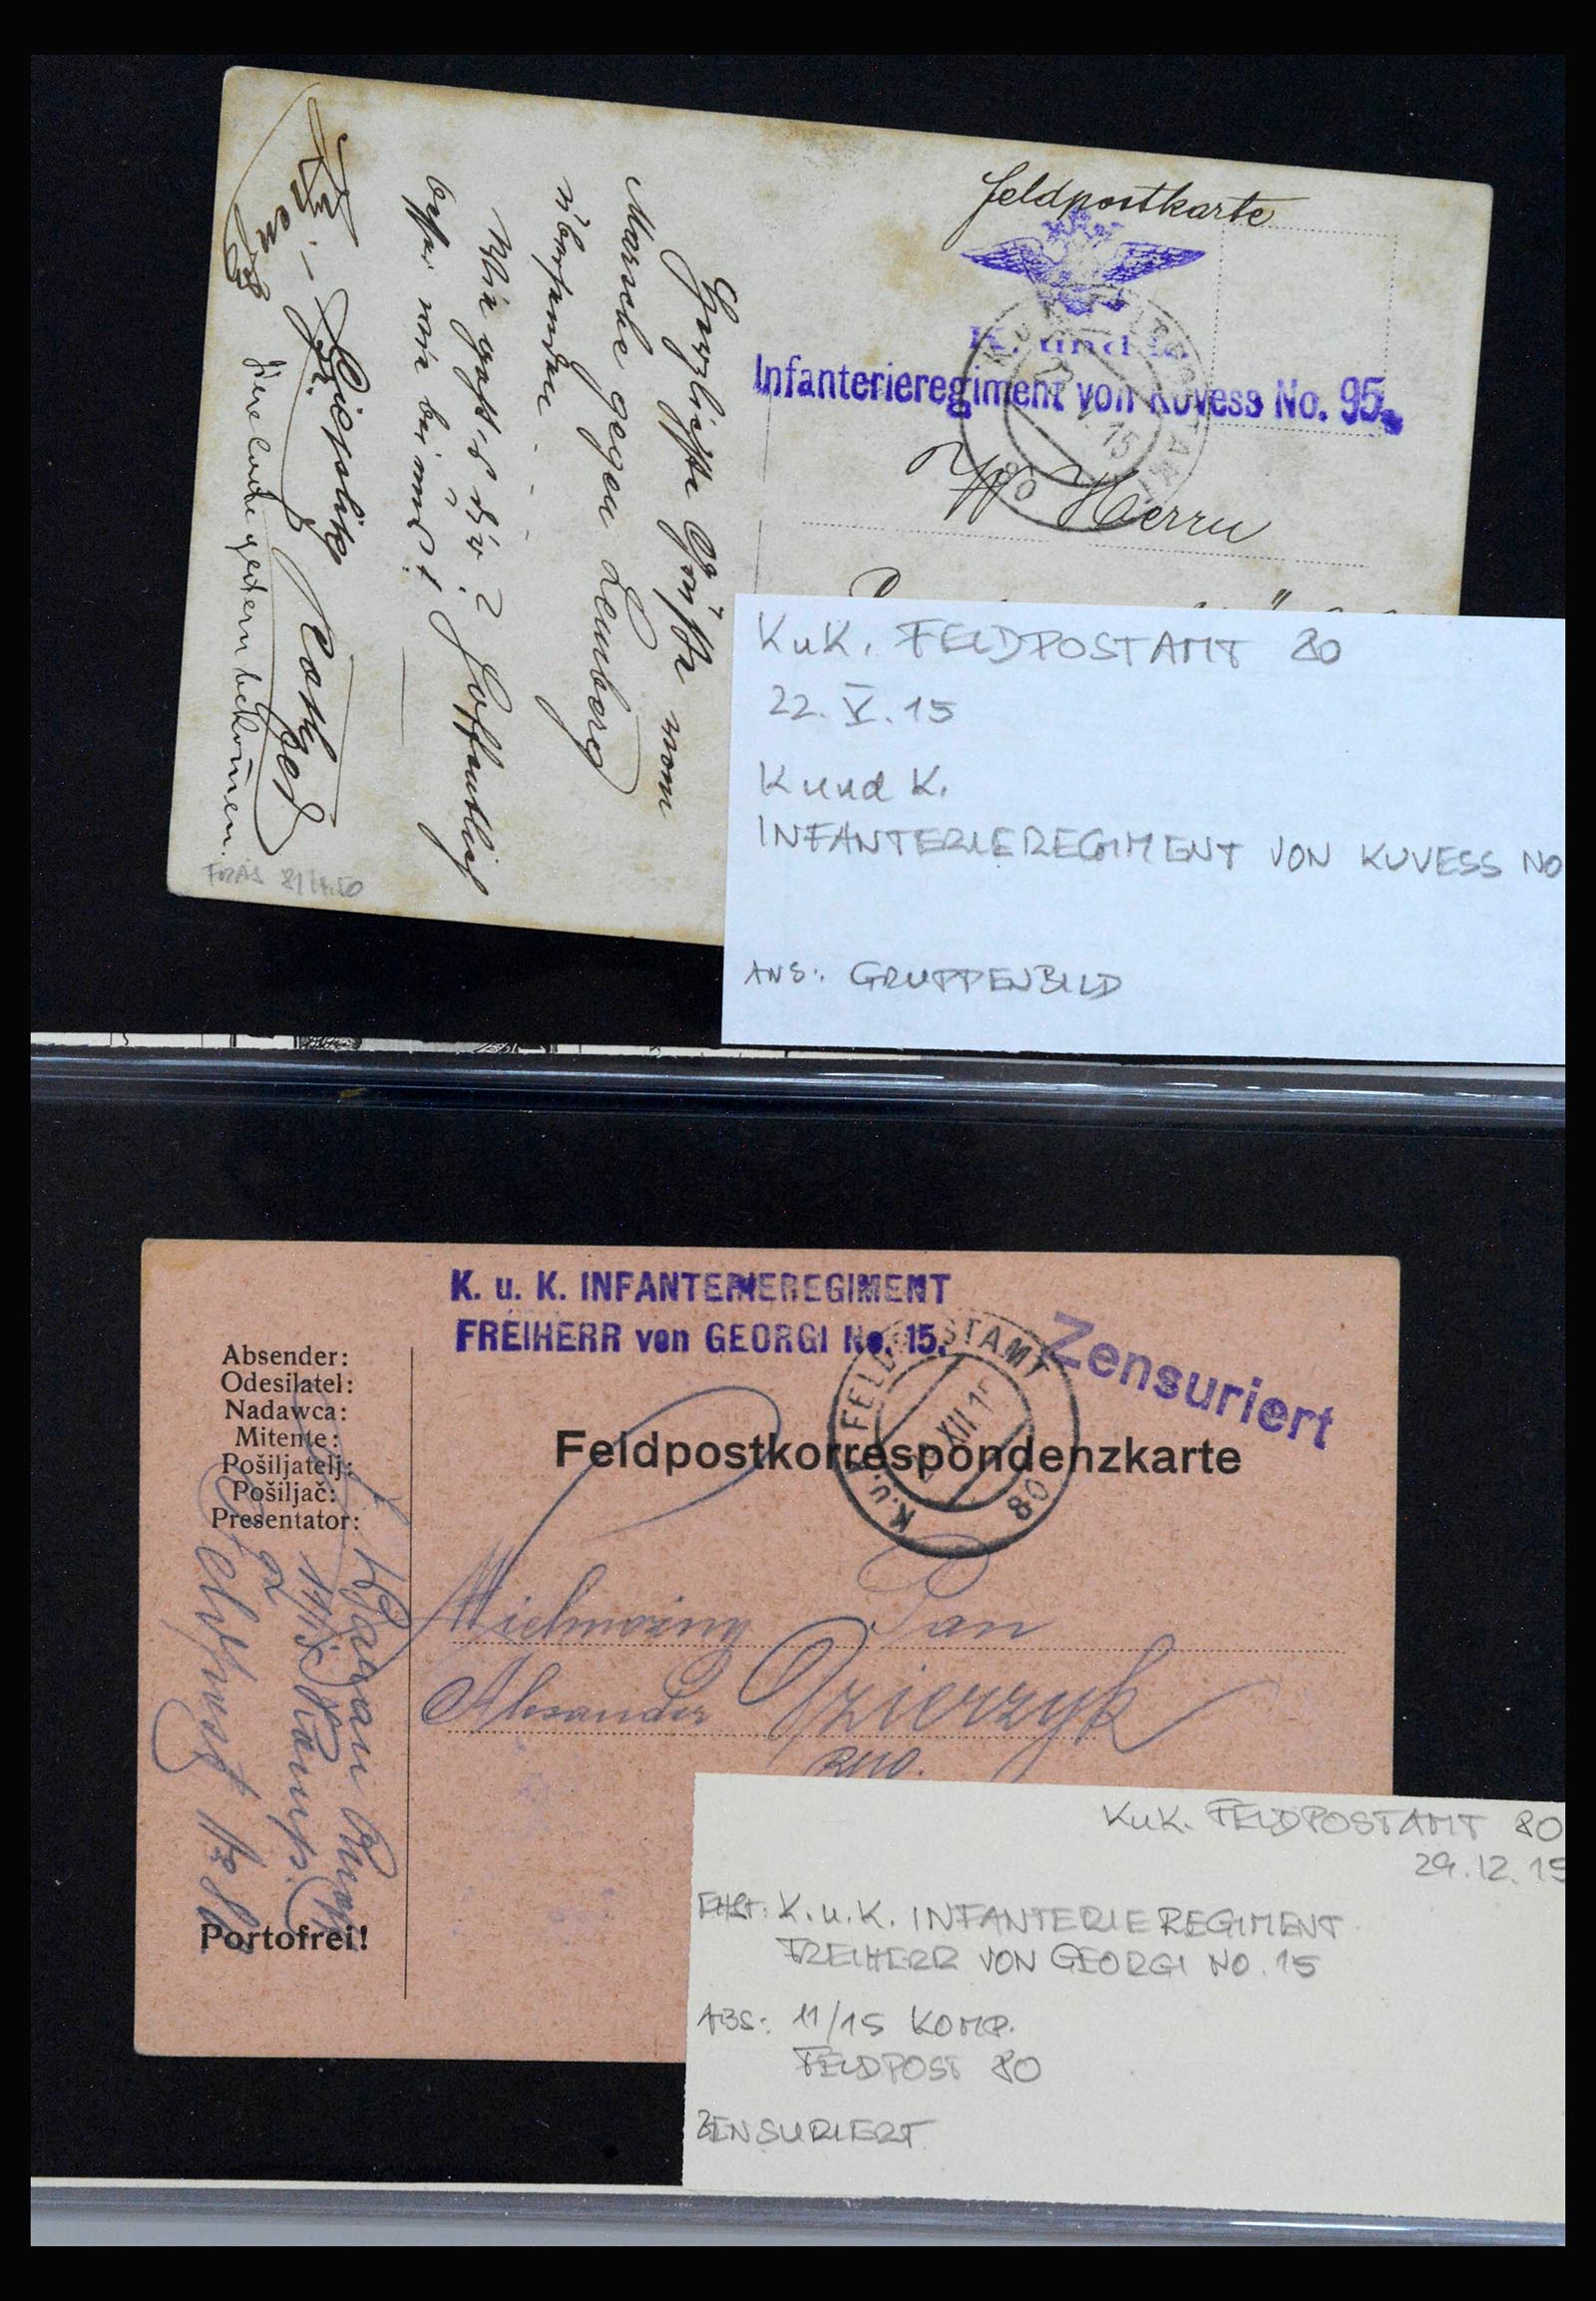 Feldpostkarte
K. und k.
Infanterieregiment von Kövess No. 95.
K.u.K. FELDPOSTAMT
V. 15
80
W. Herrn
Herzlichste Grüße vom
Marsche gegen Lemberg
übersendet
Wie geht's dir? Hoffentlich
besser wie bei uns!
gestern bekommen.
KuK. FELDPOSTAMT 80
22. V. 15
K und K.
INFANTERIEREGIMENT VON KUVESS NO
ANS: GRUPPENBILD
K. u. K. INFANTERIEREGIMENT
FREIHERR von GEORGI No. 15.
Zensuriert
K.u.K. FELDPOSTAMT
XII 15
80
Absender:
Odesilatel:
Nadawca:
Mitente:
Pošiljatelj:
Pošiljač:
Presentator:
Feldpostkorrespondenzkarte
Wielmożny Pan
Alexander
Portofrei!
KuK. FELDPOSTAMT 80
29.12.15
K.u.K. INFANTERIEREGIMENT
FREIHERR VON GEORGI NO. 15
ABS: 11/15 KOMP.
FELDPOST 80
ZENSURIERT